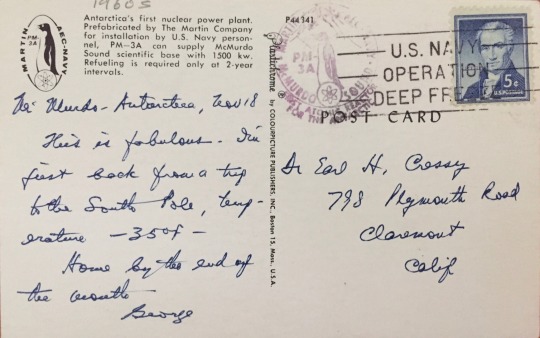 1960s
MARTIN
PM-3A
AEC-NAVY
Antarctica's first nuclear power plant.
Prefabricated by The Martin Company
for installation by U.S. Navy person-
nel, PM—3A can supply McMurdo
Sound scientific base with 1500 kw.
Refueling is required only at 2-year
intervals.
Mc Murdo - Antarctica, Nov 18
This is fabulous. I'm
just back from a trip
to the South Pole, temp-
erature -35°F-
Home by the end of
the month
George
Plastichrome by COLOURPICTURE PUBLISHERS, INC., Boston 15, Mass., U.S.A.
P44341
PM-3A
McMURDO
U.S. NAVY
OPERATION
DEEP FREEZE
5¢
U.S. POSTAGE
POST CARD
Dr Earl H. Cressy
798 Plymouth Road
Claremont
Calif